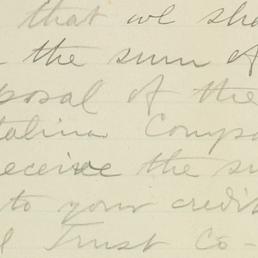 that we sha
the sum of
posal of the
talina Compa
receive the su
to your credit
l Trust Co-